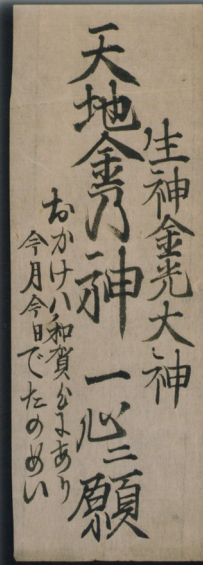 生神金光大神
天地金乃神一心ニ願
おかけハ和賀心にあり
今月今日でたのめい